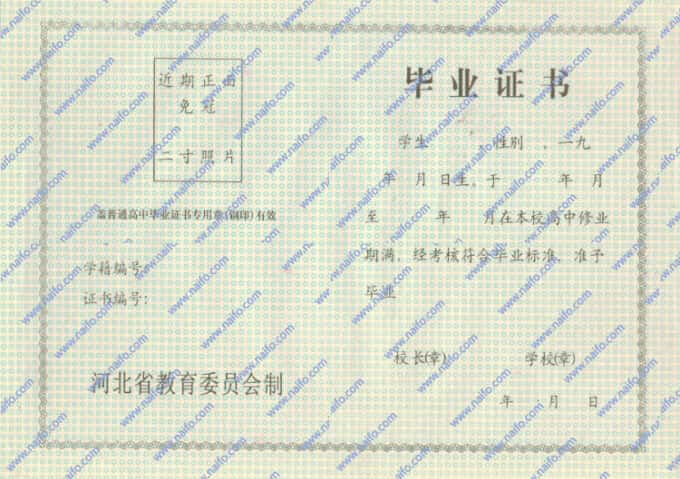 近期正面
免冠
二寸照片
盖普通高中毕业证书专用章(钢印)有效
学籍编号:
证书编号:
河北省教育委员会制
毕业证书
学生 性别 ,一九
年 月 日生,于 年 月
至 年 月在本校高中修业
期满,经考核符合毕业标准,准予
毕业
校长(章) 学校(章)
年 月 日
www.naifo.com